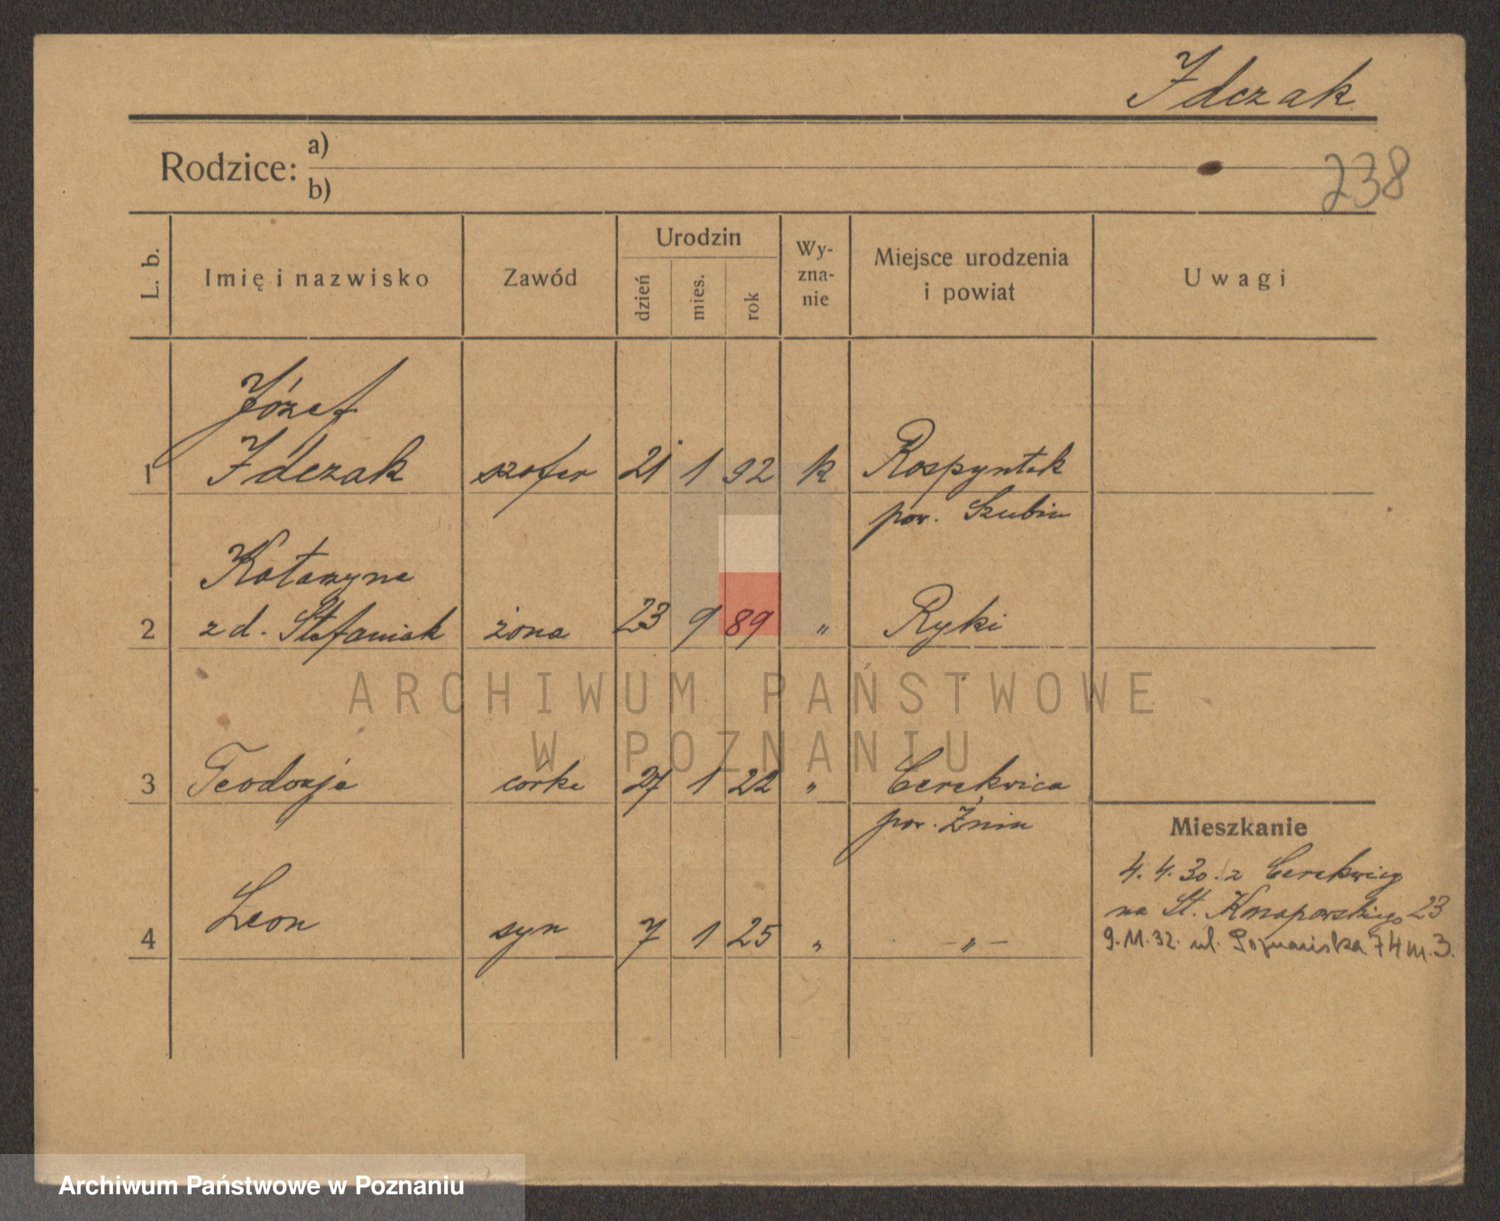 Idczak
Rodzice: a)
b)
238
L. b.
Imię i nazwisko
Zawód
Urodzin
dzień
mies.
rok
Wy-
zna-
nie
Miejsce urodzenia
i powiat
Uwagi
Józef
1 Idczak szofer 21 1 92 k Rospyntek
pow. Szubin
Katarzyna
2 z d. Stefaniak żona 23 9 89 " Ryki
ARCHIWUM PAŃSTWOWE
W POZNANIU
3 Teodozja córka 27 1 22 " Cerekwica
pow. Żnin
Mieszkanie
4. 4. 30. z Cerekwicy
na St. Knapowskiego 23
4 Leon syn 7 1 25 " - " -
9. 11. 32. ul. Poznańska 74 m. 3.
Archiwum Państwowe w Poznaniu